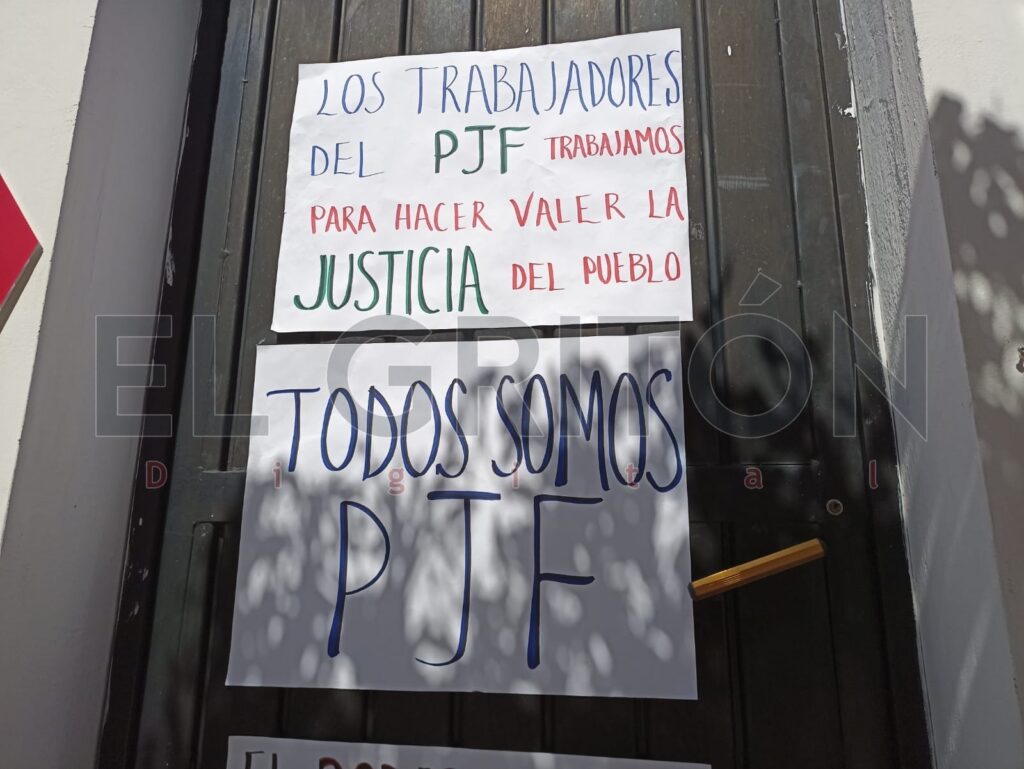 LOS TRABAJADORES
DEL PJF TRABAJAMOS
PARA HACER VALER LA
JUSTICIA DEL PUEBLO
EL GRITÓN
Digital
TODOS SOMOS
PJF
EL